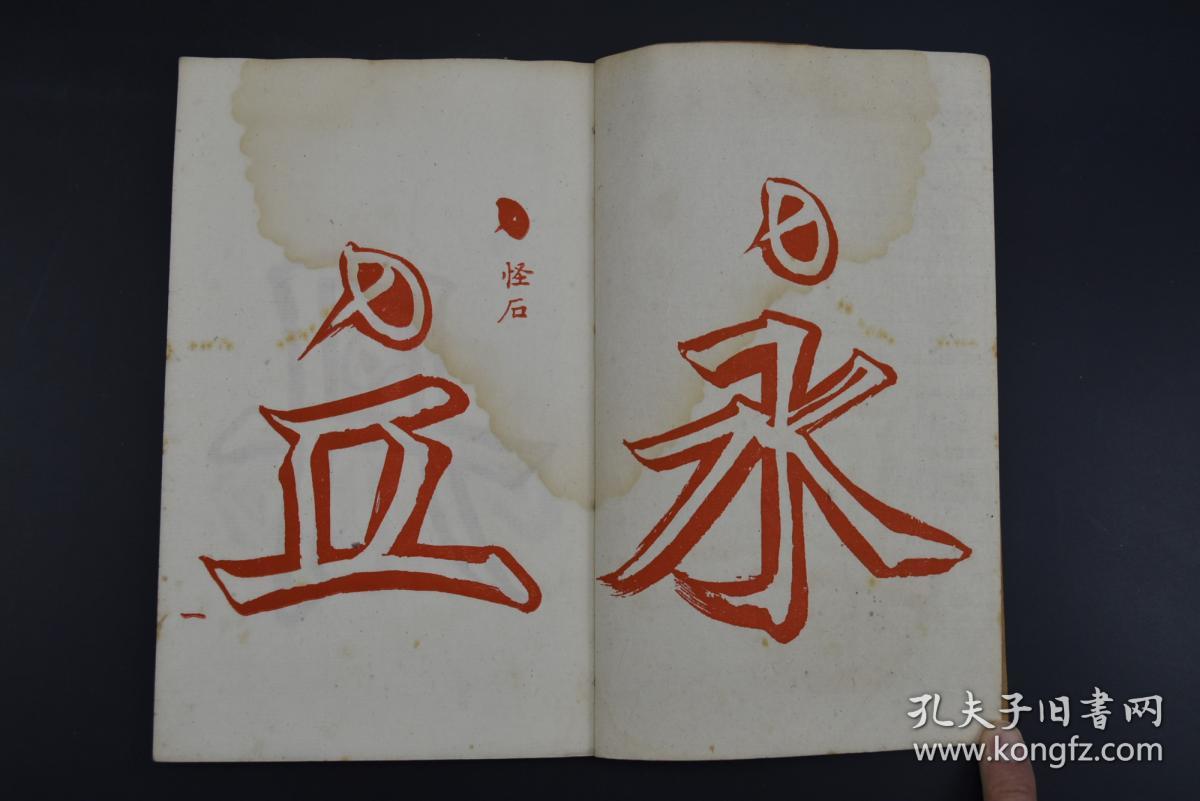 永
怪石
亞
一
孔夫子旧書网
www.kongfz.com